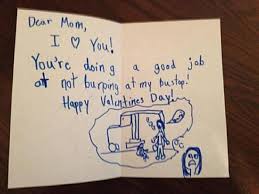 Dear Mom,
I ♡ You!
You're doing a good job
at not burping at my bustop!
Happy Valentines Day!